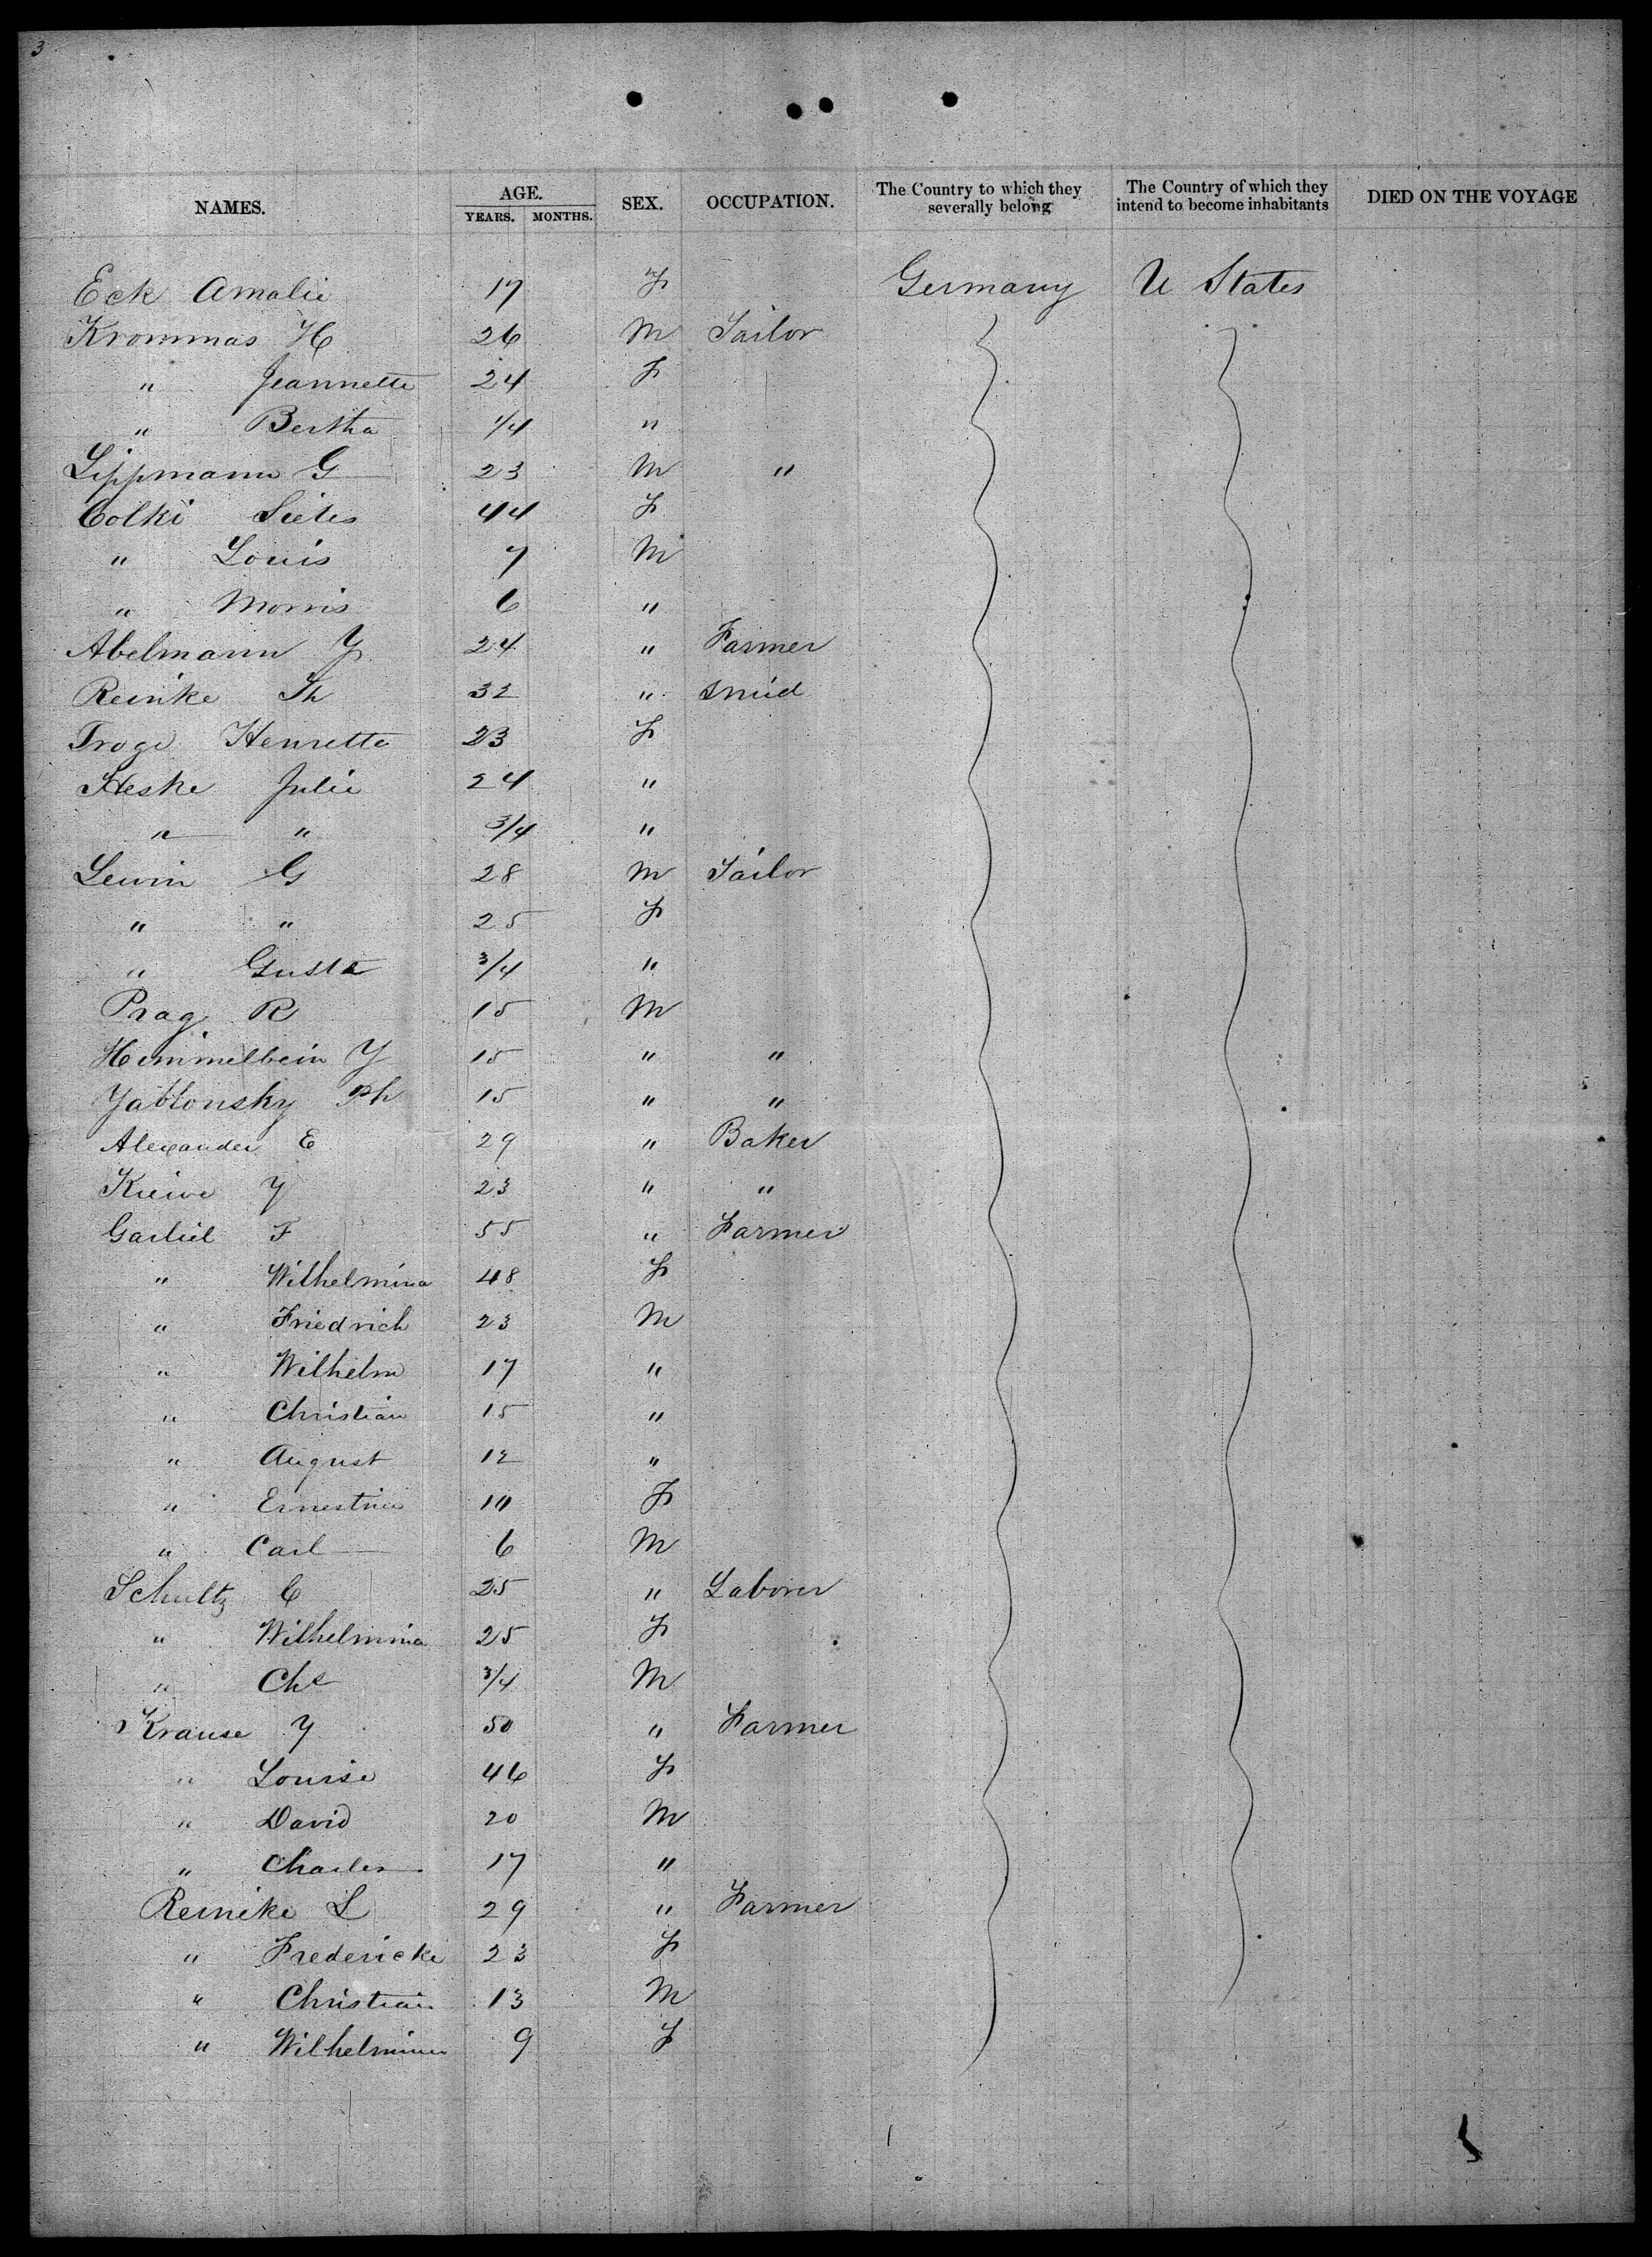 3
NAMES. AGE. YEARS. MONTHS. SEX. OCCUPATION. The Country to which they severally belong The Country of which they intend to become inhabitants DIED ON THE VOYAGE
Eck Amalie 17 F Germany U States
Krommas H 26 M Tailor
" Jeannette 24 F
" Bertha 1/4 "
Lippmann G 23 M "
Colki 44 F
" Louis 7 M
" Morris 6 "
Abelmann Y 24 " Farmer
Reinke Th 32 " Smid
Henrette 23 F
Heske Julie 24 "
" " 3/4 "
Lewin G 28 M Tailor
" " 25 F
" Gusta 3/4 "
Prag R 15 M
Himmelbein Y 15 " "
Jablonsky Ph 15 " "
Alexander E 29 " Baker
Kiewe Y 23 " "
F 55 " Farmer
" Wilhelmina 48 F
" Friedrich 23 M
" Wilhelm 17 "
" Christian 15 "
" August 12 "
" Ernestine 10 F
" Carl 6 M
Schultz C 25 " Laborer
" Wilhelmina 25 F
" Chs 3/4 M
Krause Y 50 " Farmer
" Louise 46 F
" David 20 M
" Charles 17 "
Reineke L 29 " Farmer
" Fredericke 23 F
" Christian 13 M
" Wilhelmine 9 F